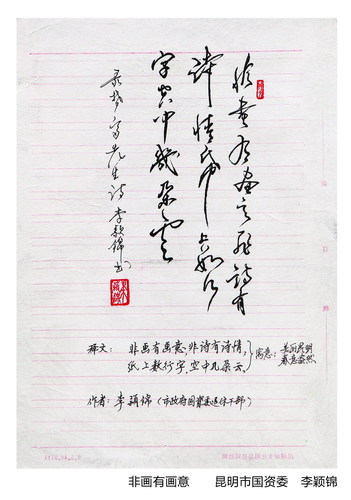 非畫有畫意非詩有
詩情纸上数行
字空中幾朵雲
先生诗 李颖锦书
释文: 非画有画意,非诗有诗情,
纸上数行字,空中几朵云。
寓意: 美丽昆明
春意盎然
作者: 李颖锦 (市政府国资委退休干部)
非画有画意 昆明市国资委 李颖锦